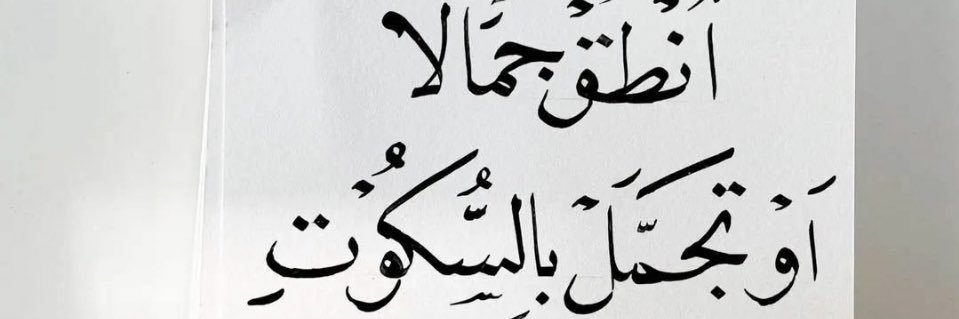 اُنْطُقْ جَمَالًا
اَوْ تَجَمَّلَ بِالسُّكُوْتِ